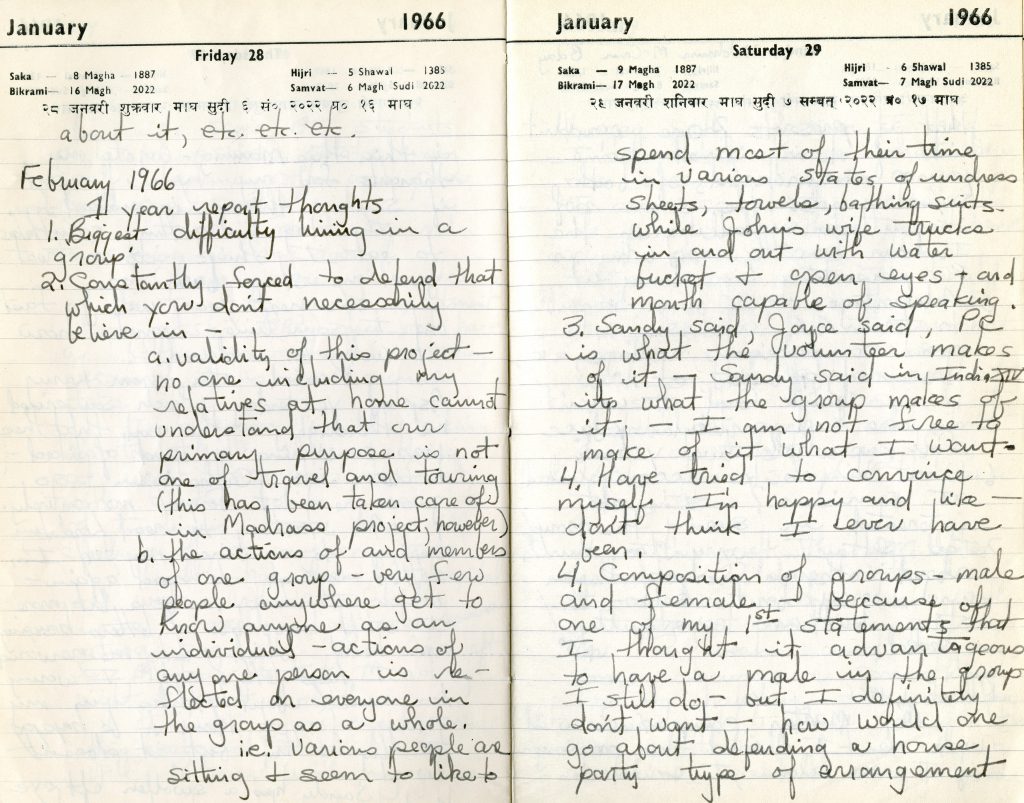 January 1966
Friday 28
Saka — 8 Magha 1887 Hijri — 5 Shawal 1385
Bikrami — 16 Magh 2022 Samvat — 6 Magh Sudi 2022
२८ जनवरी शुक्रवार माघ सुदी ६ सं० २०२२ प्र० १६ माघ
about it, etc. etc. etc.
February 1966
1 year report thoughts
1. Biggest difficulty living in a
group.
2. Constantly forced to defend that
which you don't necessarily
believe in —
a. validity of this project —
no one including my
relatives at home cannot
understand that our
primary purpose is not
one of travel and touring
(this has been taken care of
in Madrass project, however)
b. the actions of and members
of one group — very few
people anywhere get to
know anyone as an
individual — actions of
any one person is re-
flected on everyone in
the group as a whole.
i.e. various people are
sitting & seem to like to
January 1966
Saturday 29
Saka — 9 Magha 1887 Hijri — 6 Shawal 1385
Bikrami — 17 Magh 2022 Samvat — 7 Magh Sudi 2022
२९ जनवरी शनिवार माघ सुदी ७ सम्वत् २०२२ प्र० १७ माघ
spend most of their time
in various states of undress
sheets, towels, bathing suits.
while John's wife trucks
in and out with water
bucket & open eyes + and
mouth capable of speaking.
3. Sandy said, Joyce said, PC
is what the volunteer makes
of it — Sandy said in India XIV
its what the group makes of
it — I am not free to
make of it what I want.
4. Have tried to convince
myself I'm happy and like —
don't think I ever have
been.
4. Composition of groups — male
and female — because of
one of my 1st statements that
I thought it advantageous
to have a male in the group
I still do — but I definitely
don't want — how would one
go about defending a house
party type of arrangement